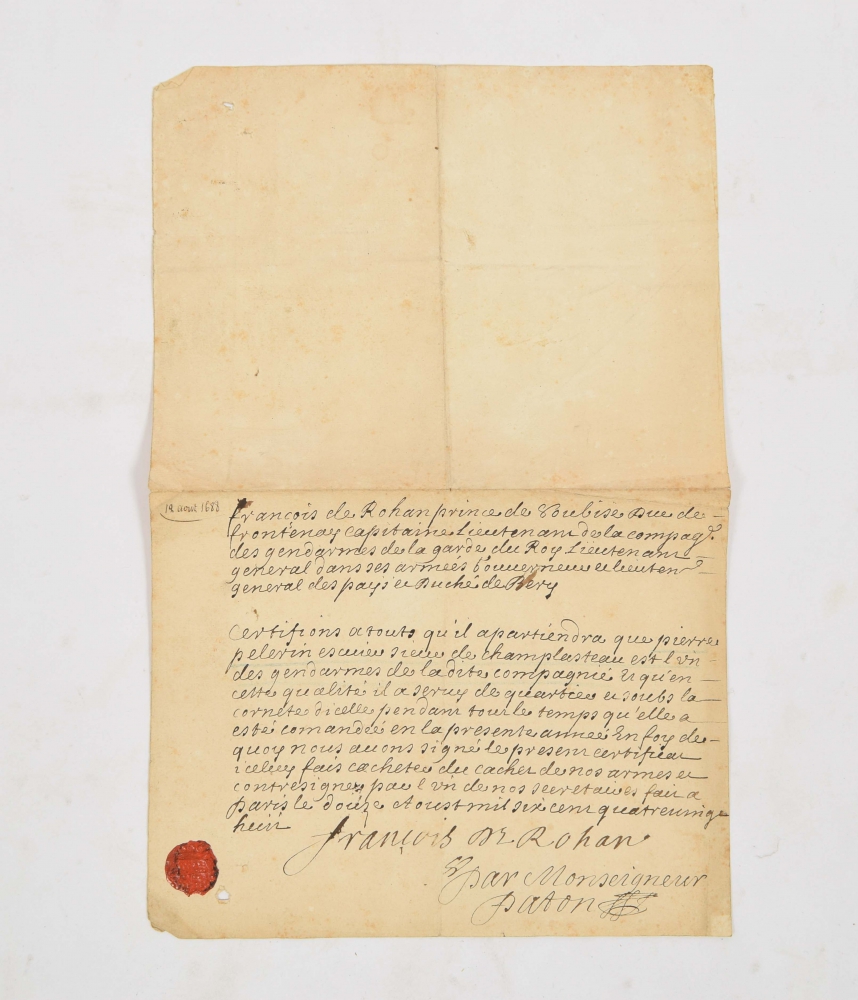 12 aout 1688
françois de Rohan prince de Soubise Duc de
frontenay capitaine Lieutenant de la compag.
des gendarmes de la garde du Roy Lieutenant
general dans ses armées Gouuerneur et lieuten
general des pays et Duché de Bery
certifions a touts qu'il apartiendra que pierre
pelerin escuier sieur de champlasteau est l'vn
des gendarmes de ladite compagnie Et qu'en
cette qualité il a seruy de quartier et soubs la
cornete d'icelle pendant tout le temps qu'elle a
esté comandée en la presente année En foy de
quoy nous auons signé le present certificat
iceluy fais cacheter du cachet de nos armes et
contresigner par l'vn de nos secretaires fait a
paris le douze Aoust mil six cent quatreuingt
huit
françois DE Rohan
par Monseigneur
Paton